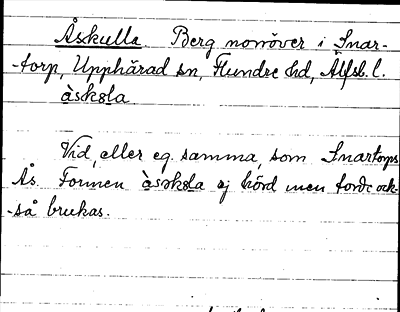 Åskulla. Berg norröver i Snar-
-torp, Upphärad sn, Flundre hd, Älfsb. l.
àskɷla
Vid, eller eg. samma, som Snartorps
Ås. Formen àsɷkɷla ej hörd men torde ock-
-så brukas.